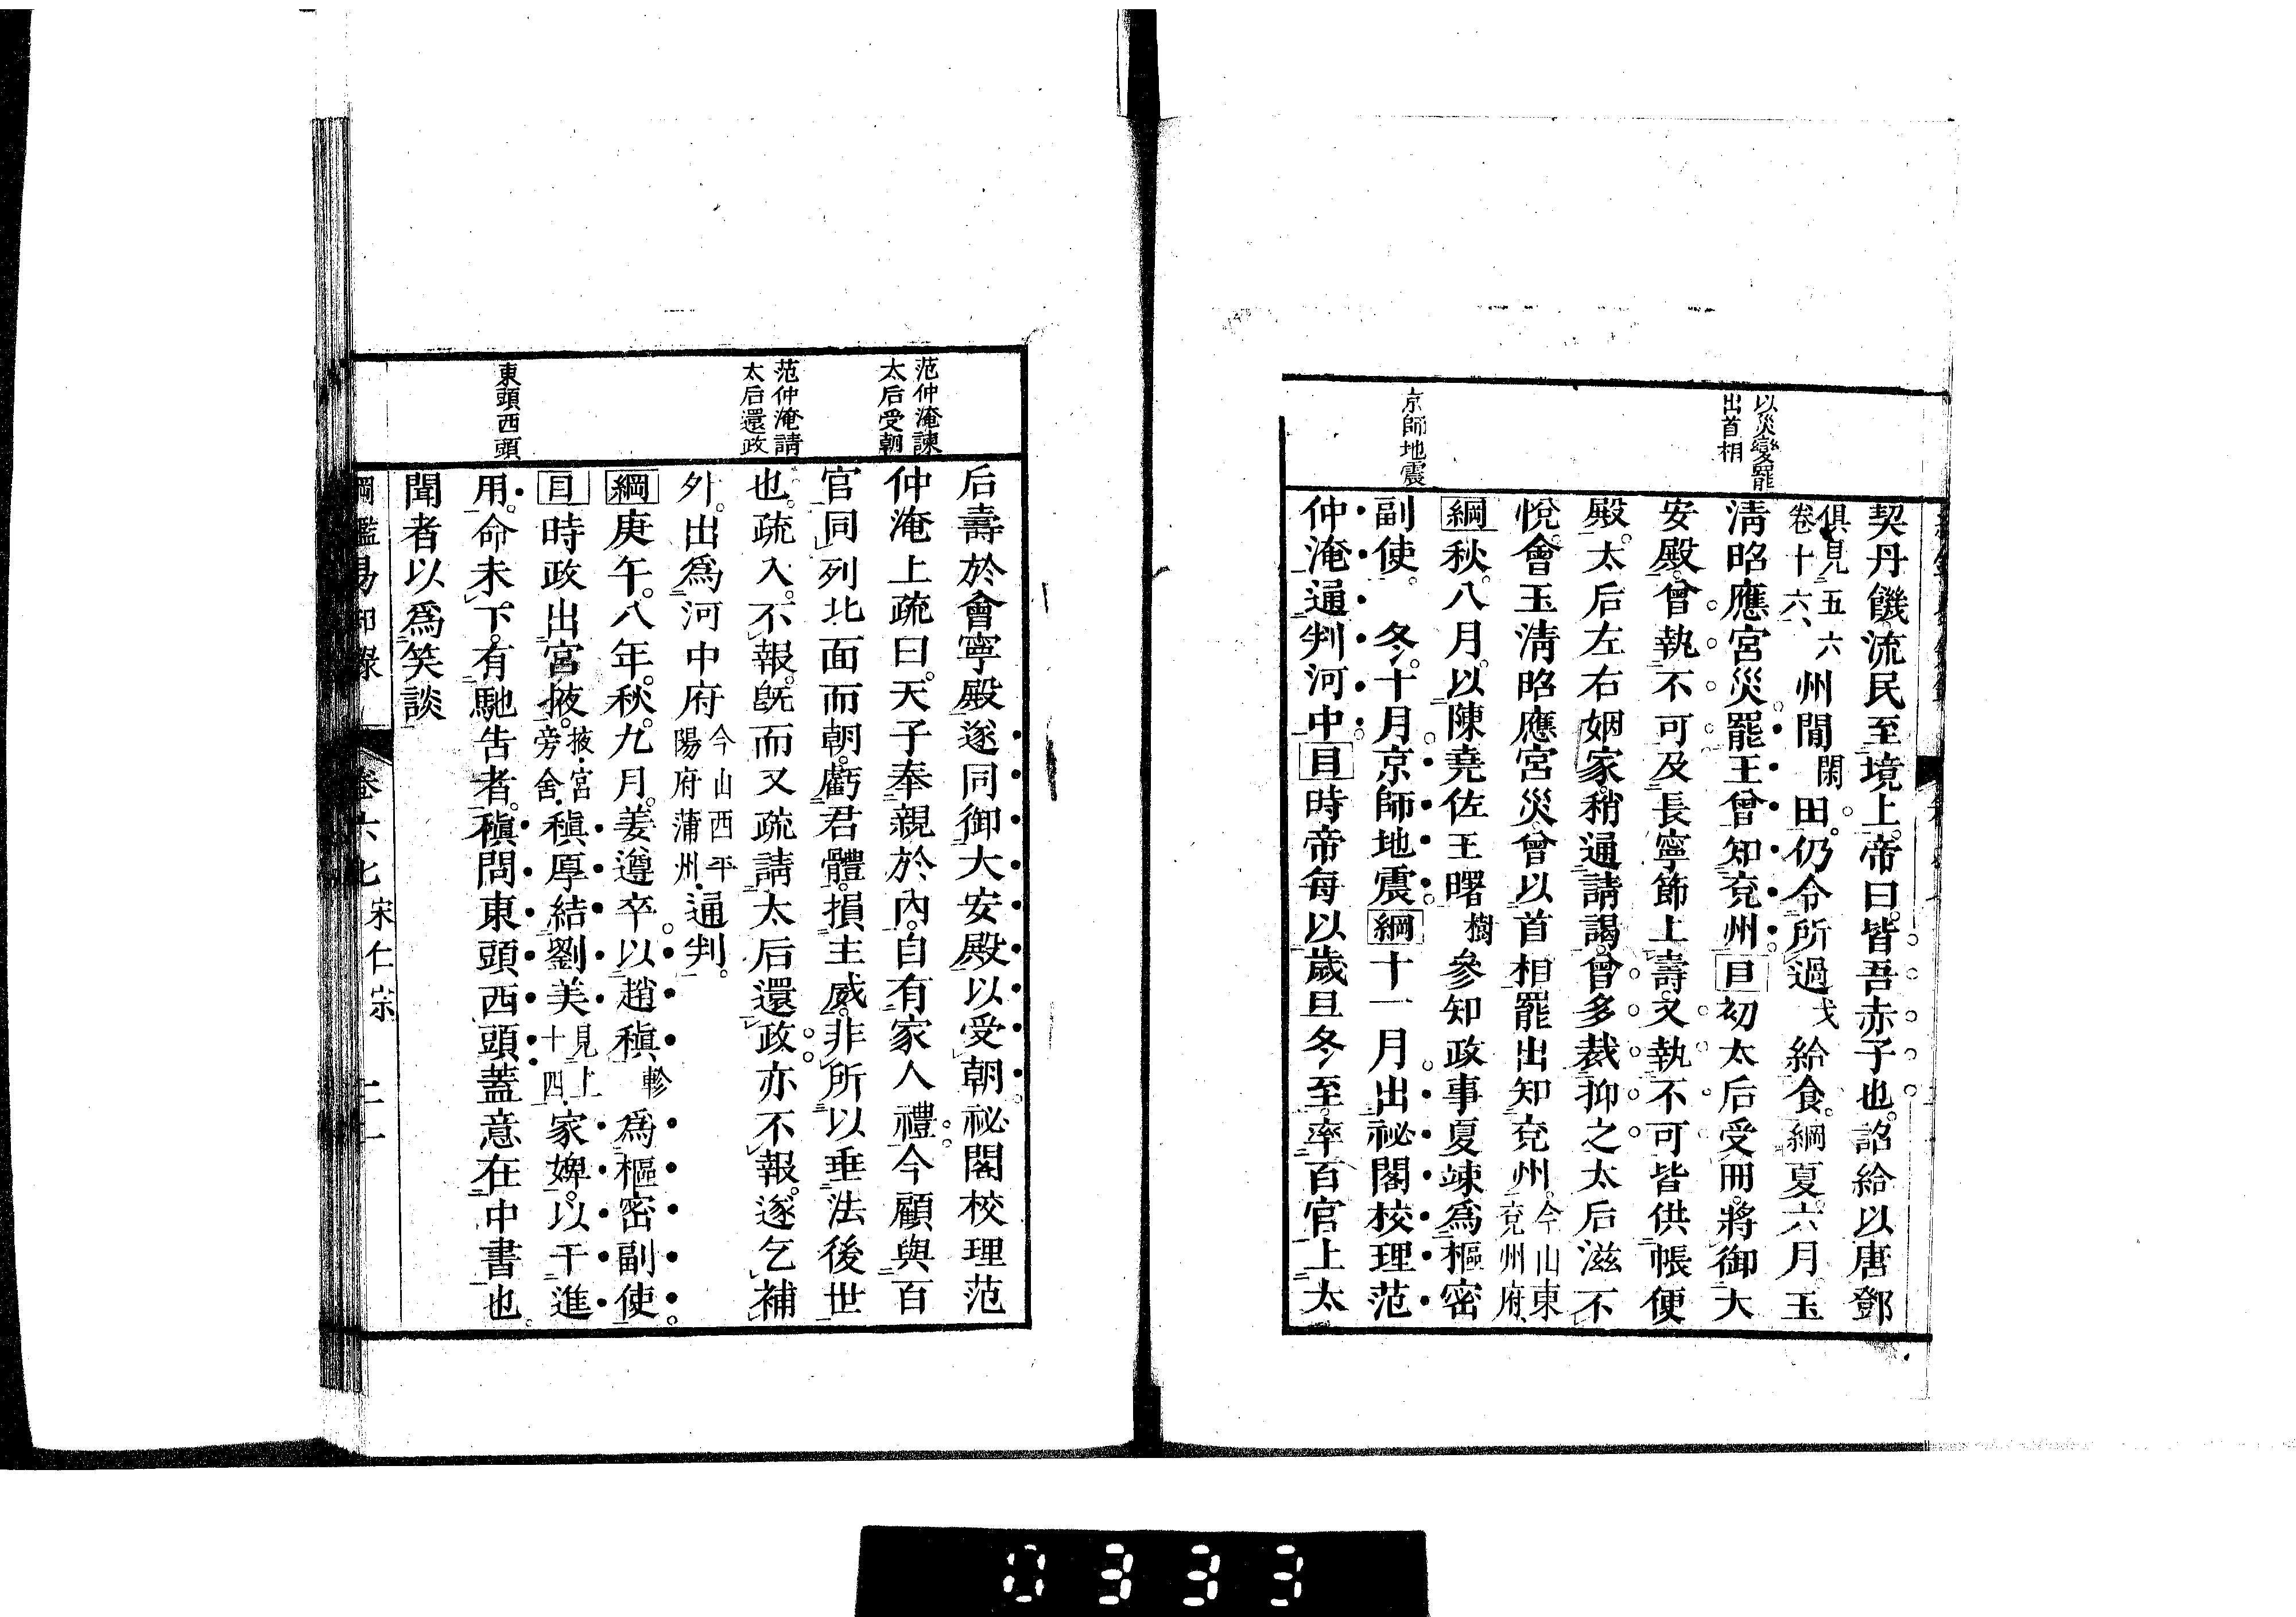 以災變罷
出首相
京師地震
契丹饑流民至境上。帝曰。皆吾赤子也。詔給以唐鄧
俱見五六
卷十六、
州閒
閑
田。仍令所過
戈
給食。綱夏。六月。玉
淸昭應宮災。罷王曾知兗州。目初太后受冊。將御大
安殿。曾執不可。及長寧節上壽。又執不可。皆供帳便
殿。太后左右姻家。稍通請謁。曾多裁抑之。太后滋不
悅。會玉淸昭應宮災。曾以首相罷出知兗州。
今山東
兗州府、
綱秋。八月。以陳堯佐王曙
樹
參知政事夏竦爲樞密
副使。 冬。十月。京師地震。綱十一月。出祕閣校理范
仲淹通判河中。目時帝每以歲旦冬至。率百官上太
范仲淹諫
太后受朝
范仲淹請
太后還政
東頭西頭
后壽於會寧殿。遂同御大安殿以受朝。祕閣校理范
仲淹上疏曰。天子奉親於內。自有家人禮。今顧與百
官同列北面而朝。虧君體。損主威。非所以垂法後世
也。疏入。不報。旣而又疏請太后還政。亦不報。遂乞補
外。出爲河中府
今山西平
陽府蒲州
通判。
綱庚午。八年。秋。九月。姜遵卒以趙稹
軫
爲樞密副使。
目時政出宮掖。
掖宮
旁舍
稹厚結劉美
見上
十四
家婢。以干進
用。命未下。有馳告者。稹問東頭西頭。蓋意在中書也。
聞者以爲笑談
綱鑑易知錄
卷六七
宋仁宗